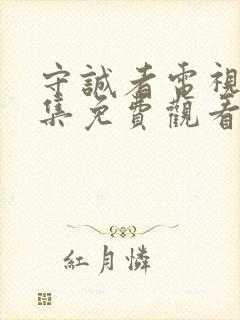 守誠者電視
集免費觀看
紅月憐